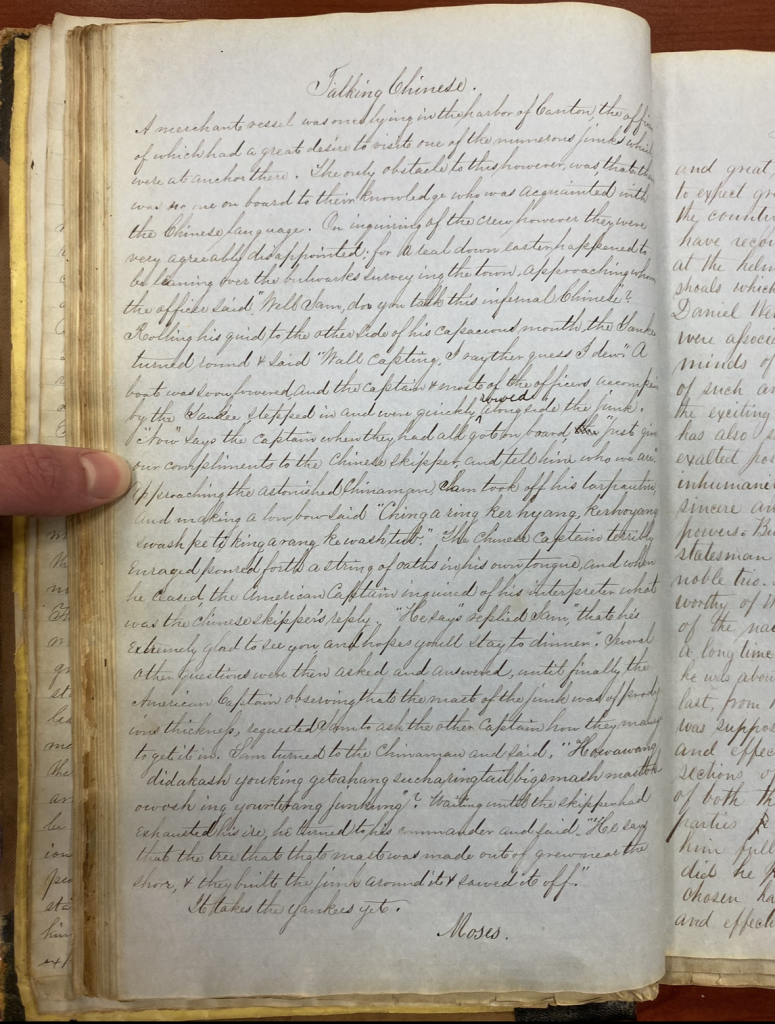 Talking Chinese.
A merchant vessel was once lying in the harbor of Canton, the offi
of which had a great desire to visit one of the numerous junks which
were at anchor there. The only obstacle to this however, was, that there
was no one on board to their knowledge who was acquainted with
the Chinese language. On inquiring of the crew however they were
very agreeably disappointed; for a real down easter, happened to
be leaning over the bulwarks surveying the town, approaching whom
the officer said "Well Sam, do you talk this infernal Chinese"?
Rolling his quid to the other side of his capacious mouth, the Yankee
turned round & said "Wall Capting, I rayther guess I dew". A
boat was soon lowered, and the Captain & most of the officers accomp
by the Yankee stepped in and were quickly rowed alongside the junk.
"Now" says the Captain when they had all got on board "just give
our compliments to the Chinese skipper, and tell him who we are."
Approaching the astonished Chinaman, Sam took off his tarpaulin,
and making a low bow said "Ching a ring ker hyang, kershoyang
swash pe ti king a rang ke wash tub." The Chinese Captain terribly
enraged poured forth a string of oaths in his own tongue, and when
he ceased, the American Captain inquired of his interpreter what
was the Chinese skipper's reply. "He says" replied Sam, "that he's
extremely glad to see you and hopes you'll stay to dinner". Several
other questions were then asked and answered, until finally the
American Captain observing that the mast of the junk was of prodig
ious thickness, requested Sam to ask the other Captain how they manag
to get it in. Sam turned to the Chinaman and said, "Howawang
didakash youking getahang sucharingtail bigsmash mast
owosh ing yourterang junkung"? Waiting until the skipper had
exhausted his ire, he turned to his commander and said, "He says
that the tree that that mast was made out of grew near the
shore, & they built the junk around it & sawed it off."
It takes the yankees yet.
Moses.
and great,
to expect
the countr
have recei
at the helm
shoals which
Daniel We
were associ
minds of
of such an
the exciting
has also s
exalted pos
inhumane
sincere an
powers. Bu
statesman
noble trio.
worthy of
of the na
a long time
he was abou
last, from
was suppo
and effec
sections o
of both th
parties
him full
did he
chosen ha
and effect